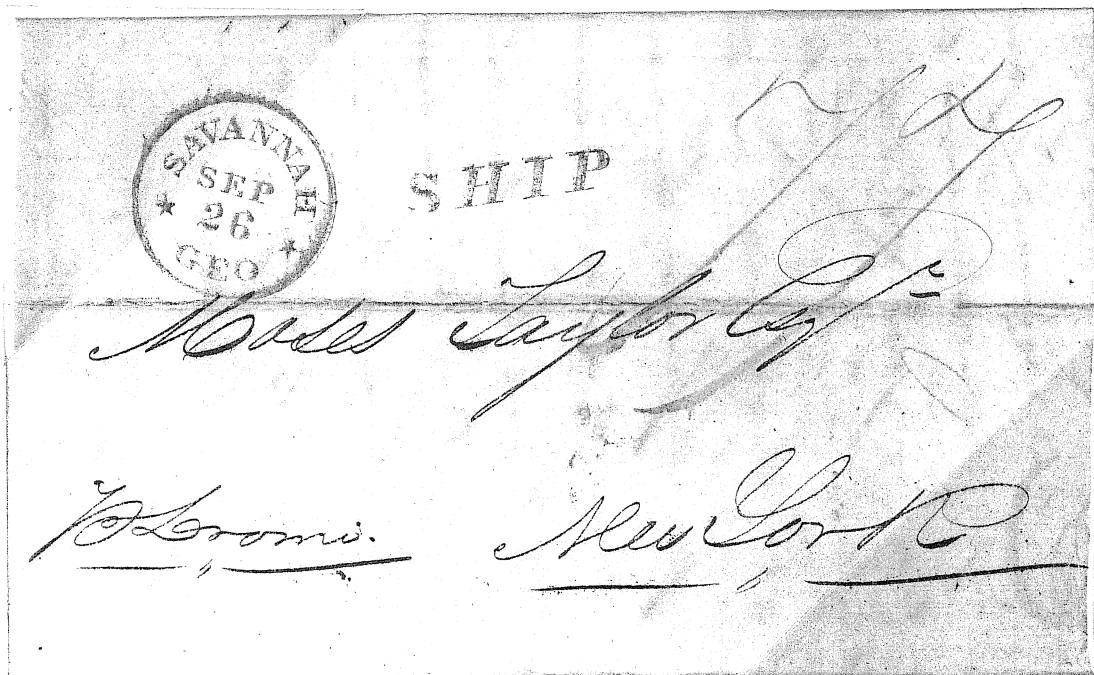 SAVANNAH
SEP
26
GEO
SHIP
Moses Taylor Esqr
New York